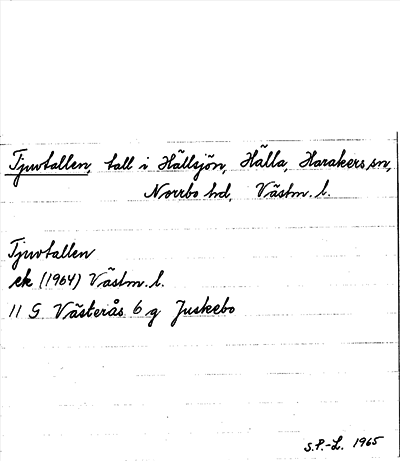 Tjuvtallen, tall i Hällsjön, Hälla, Harakers sn,
Norrbo hd, Västm. l.
Tjuvtallen
ek (1964) Västm. l.
11 G Västerås 6 g Juskebo
S.P.-L. 1965